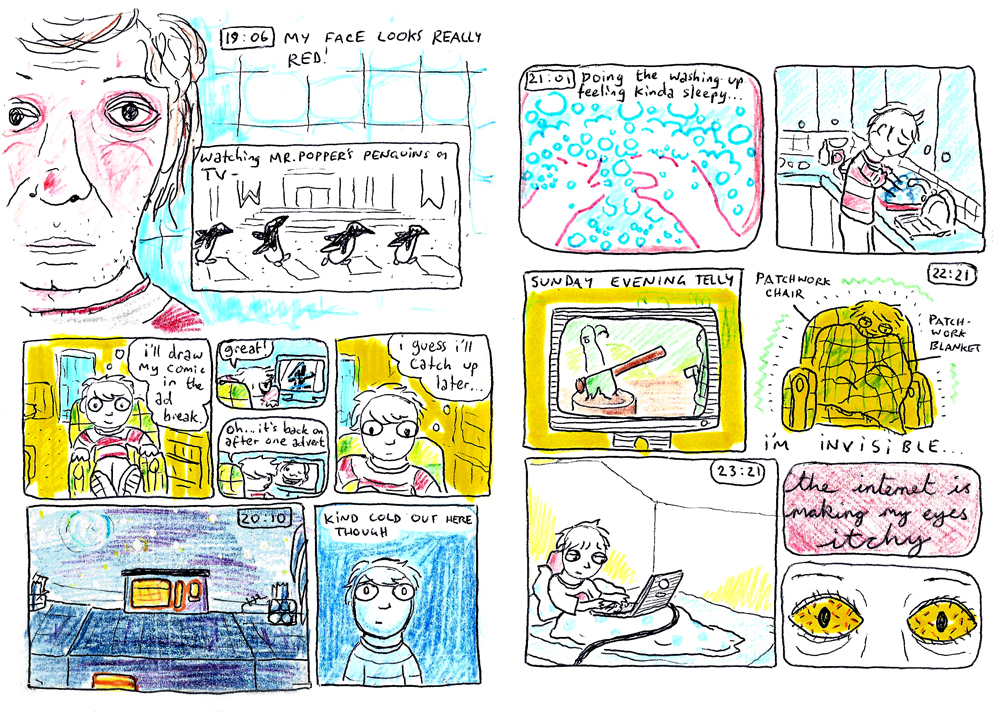 19:06 MY FACE LOOKS REALLY
RED!
Watching MR. POPPER'S PENGUINS on
TV-
i'll draw
my comic
in the
ad
break.
great!
4
Oh... it's back on
after one advert
i guess i'll
catch up
later...
20:10
KIND COLD OUT HERE
THOUGH
21:01 Doing the washing up
feeling kinda sleepy...
SUNDAY EVENING TELLY
22:21
PATCHWORK
CHAIR
PATCH-
WORK
BLANKET
i'M INVISIBLE...
23:21
the internet is
making my eyes
itchy